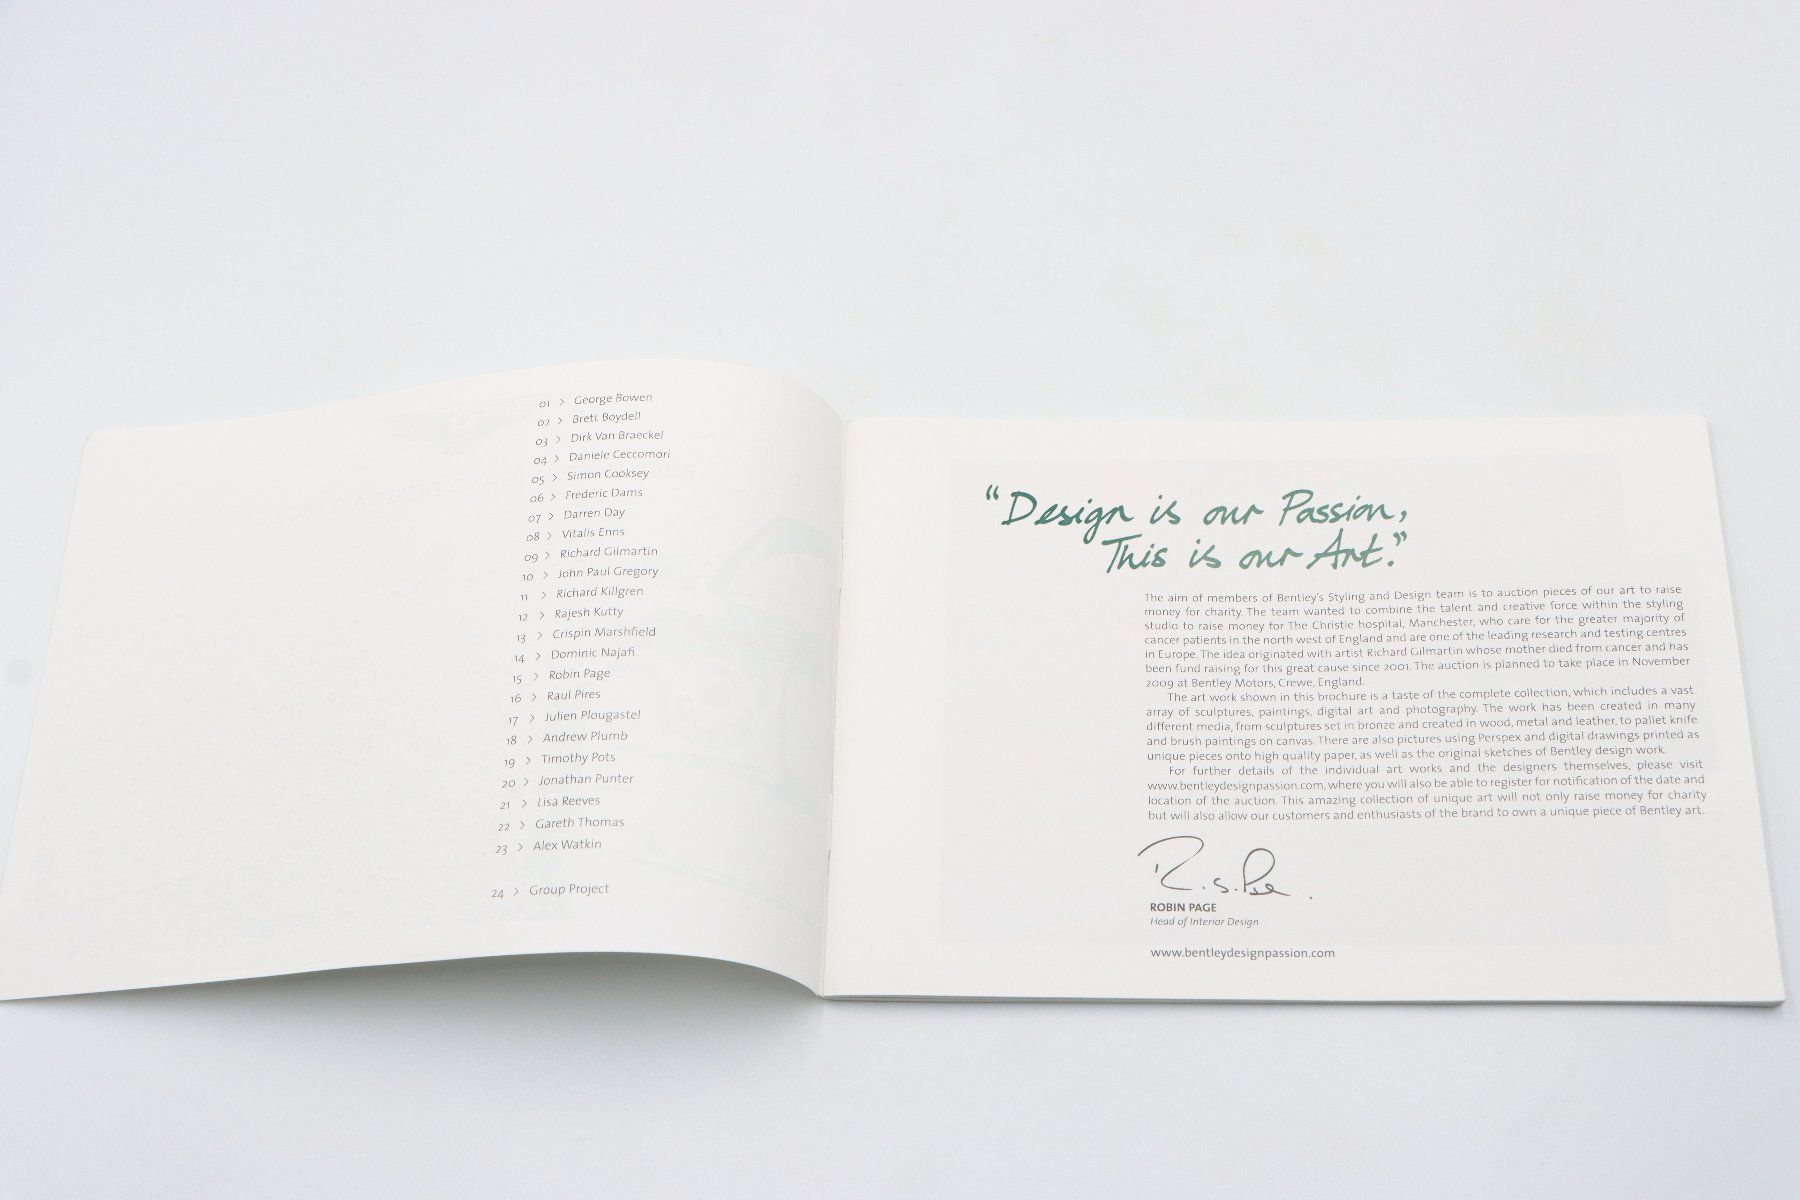 01 > George Bowen
02 > Brett Boydell
03 > Dirk Van Braeckel
04 > Daniele Ceccomori
05 > Simon Cooksey
06 > Frederic Dams
07 > Darren Day
08 > Vitalis Enns
09 > Richard Gilmartin
10 > John Paul Gregory
11 > Richard Killgren
12 > Rajesh Kutty
13 > Crispin Marshfield
14 > Dominic Najafi
15 > Robin Page
16 > Raul Pires
17 > Julien Plougastel
18 > Andrew Plumb
19 > Timothy Pots
20 > Jonathan Punter
21 > Lisa Reeves
22 > Gareth Thomas
23 > Alex Watkin
24 > Group Project
“Design is our Passion,
This is our Art.”
The aim of members of Bentley's Styling and Design team is to auction pieces of our art to raise
money for charity. The team wanted to combine the talent and creative force within the styling
studio to raise money for The Christie hospital, Manchester, who care for the greater majority of
cancer patients in the north west of England and are one of the leading research and testing centres
in Europe. The idea originated with artist Richard Gilmartin whose mother died from cancer and has
been fund raising for this great cause since 2001. The auction is planned to take place in November
2009 at Bentley Motors, Crewe, England.
The art work shown in this brochure is a taste of the complete collection, which includes a vast
array of sculptures, paintings, digital art and photography. The work has been created in many
different media, from sculptures set in bronze and created in wood, metal and leather, to pallet knife
and brush paintings on canvas. There are also pictures using Perspex and digital drawings printed as
unique pieces onto high quality paper, as well as the original sketches of Bentley design work.
For further details of the individual art works and the designers themselves, please visit
www.bentleydesignpassion.com, where you will also be able to register for notification of the date and
location of the auction. This amazing collection of unique art will not only raise money for charity
but will also allow our customers and enthusiasts of the brand to own a unique piece of Bentley art.
ROBIN PAGE
Head of Interior Design
www.bentleydesignpassion.com